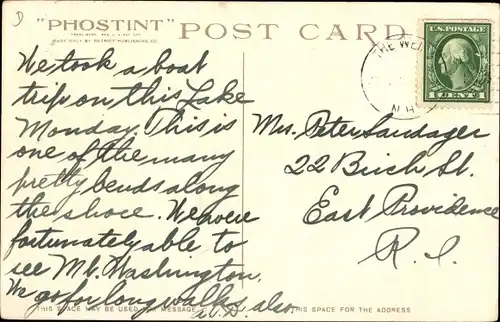 D
"PHOSTINT" POST CARD
MADE ONLY BY DETROIT PUBLISHING CO.
U.S. POSTAGE
1 CENT 1
THE WEI
N.H.
We took a boat
trip on this Lake
Monday. This is
one of the many
pretty bends along
the shore. We were
fortunately able to
see Mt. Washington.
We go for long walks also.
Mrs. Peter Sandager
22 Birch St.
East Providence
R. I.
THIS SPACE MAY BE USED FOR MESSAGE
THIS SPACE FOR THE ADDRESS